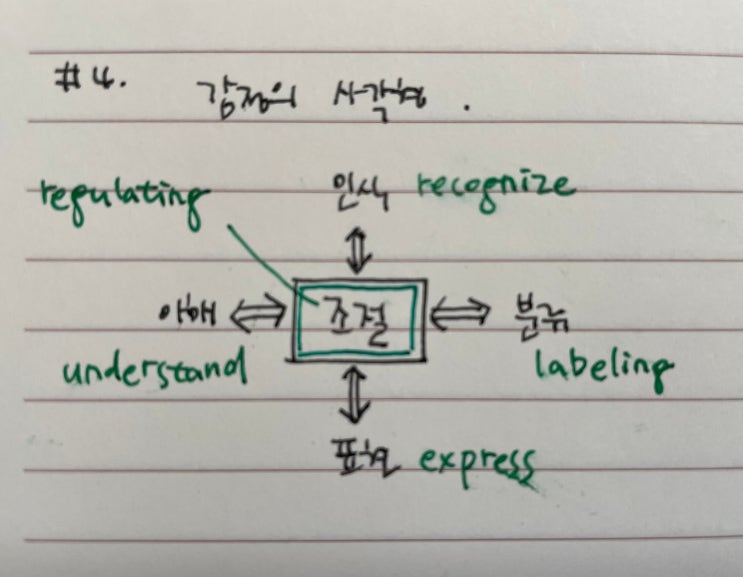 #4. 감정의 사각형.
regulating 인식 recognize
이해 조절 분류
understand labeling
표현 express